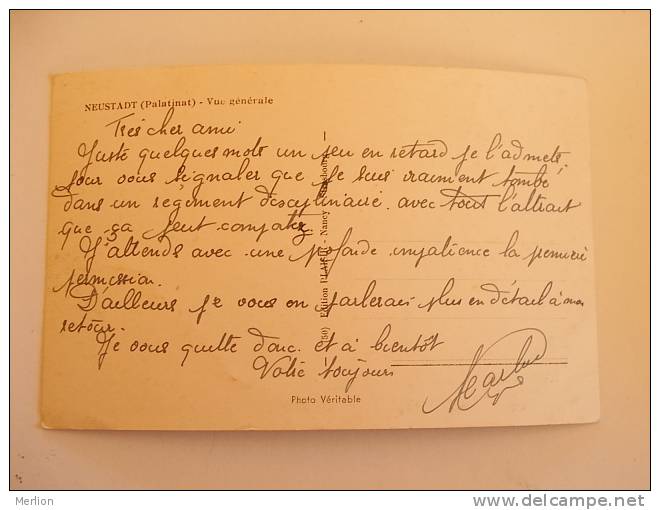 NEUSTADT (Palatinat) - Vue générale
Très cher ami
Juste quelques mots un peu en retard je l'admets,
pour vous signaler que je suis vraiment tombé
dans un régiment disciplinaire avec tout l'attrait
que ça peut
J'attends avec une profonde impatience la première
permission.
D'ailleurs je vous en parlerais plus en détail à mon
retour.
Je vous quitte donc et à bientôt
Votre toujours
Photo Véritable
Edition - Nancy
Merlion
www.delcampe.net